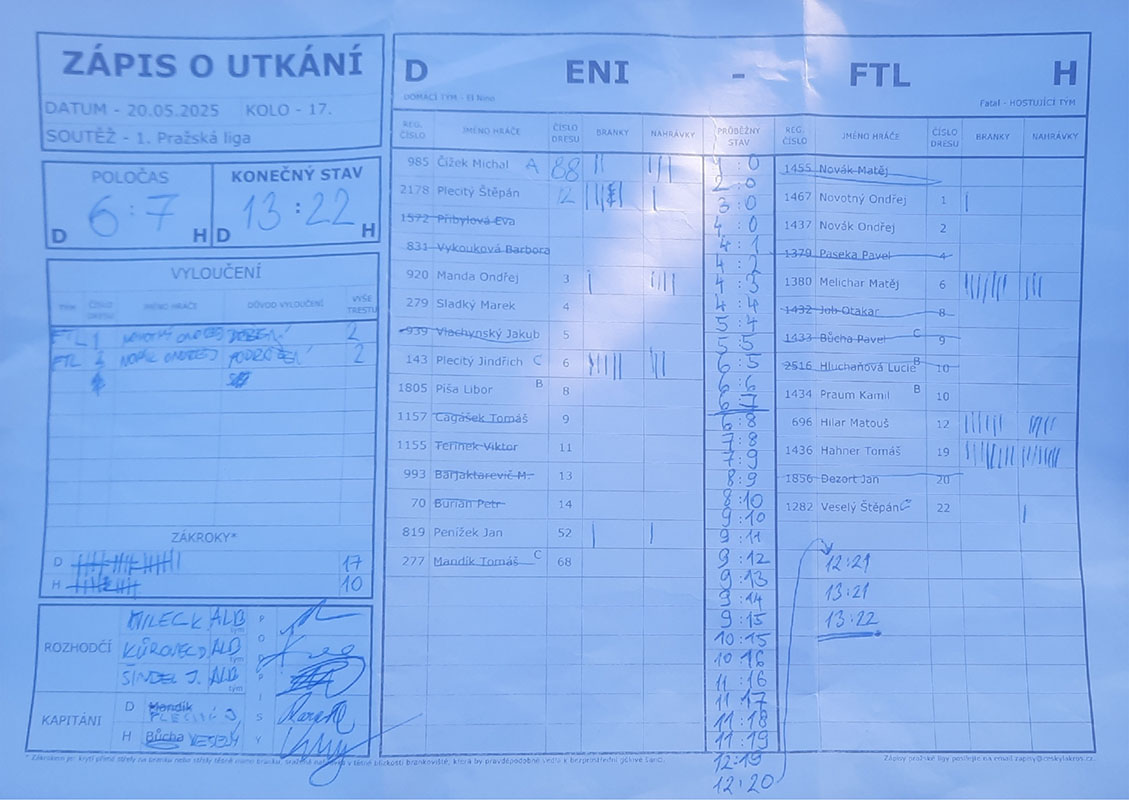 ZÁPIS O UTKÁNÍ
DATUM - 20.05.2025 KOLO - 17.
SOUTĚŽ - 1. Pražská liga
POLOČAS
6:7
D H
KONEČNÝ STAV
13:22
D H
VYLOUČENÍ
TÝM ČÍSLO DRESU JMÉNO HRÁČE DŮVOD VYLOUČENÍ VÝŠE TRESTU
FTL 1 NOVOTNÝ ONDŘEJ 2
FTL NOVÁK ONDŘEJ PODRAŽENÍ 2
ZÁKROKY*
D 17
H 10
ROZHODČÍ PODPISY
ALB tým
KŮROVEC D ALB tým
ŠINDEL J. ALB tým
KAPITÁNI
D Mandík PLECITÝ J
H Bůcha VESELÝ
D ENI - FTL H
DOMÁCÍ TÝM - El Nino
Fatal - HOSTUJÍCÍ TÝM
REG. ČÍSLO JMÉNO HRÁČE ČÍSLO DRESU BRANKY NAHRÁVKY
985 Čížek Michal A 88
2178 Plecitý Štěpán 12
1572 Přibylová Eva
831 Vykouková Barbora
920 Manda Ondřej 3
279 Sladký Marek 4
939 Vlachynský Jakub 5
143 Plecitý Jindřich C 6
1805 Píša Libor B 8
1157 Cagášek Tomáš 9
1155 Teřínek Viktor 11
993 Barjaktarevič M. 13
70 Burian Petr 14
819 Penížek Jan 52
277 Mandík Tomáš C 68
PRŮBĚŽNÝ STAV
1:0
2:0
3:0
4:0
4:1
4:2
4:3
4:4
5:4
5:5
6:5
6:6
6:7
6:8
7:8
7:9
8:9
8:10
9:10
9:11
9:12
9:13
9:14
9:15
10:15
10:16
11:16
11:17
11:18
11:19
12:19
12:20
REG. ČÍSLO JMÉNO HRÁČE ČÍSLO DRESU BRANKY NAHRÁVKY
1455 Novák Matěj
1467 Novotný Ondřej 1
1437 Novák Ondřej 2
1379 Paseka Pavel 4
1380 Melichar Matěj 6
1432 Job Otakar 8
1433 Bůcha Pavel C 9
2516 Hluchaňová Lucie B 10
1434 Praum Kamil B 10
696 Hilar Matouš 12
1436 Hahner Tomáš 19
1856 Dezort Jan 20
1282 Veselý Štěpán C 22
12:21
13:21
13:22
Zápisy pražské ligy posílejte na email zapisy@ceskylakros.cz.